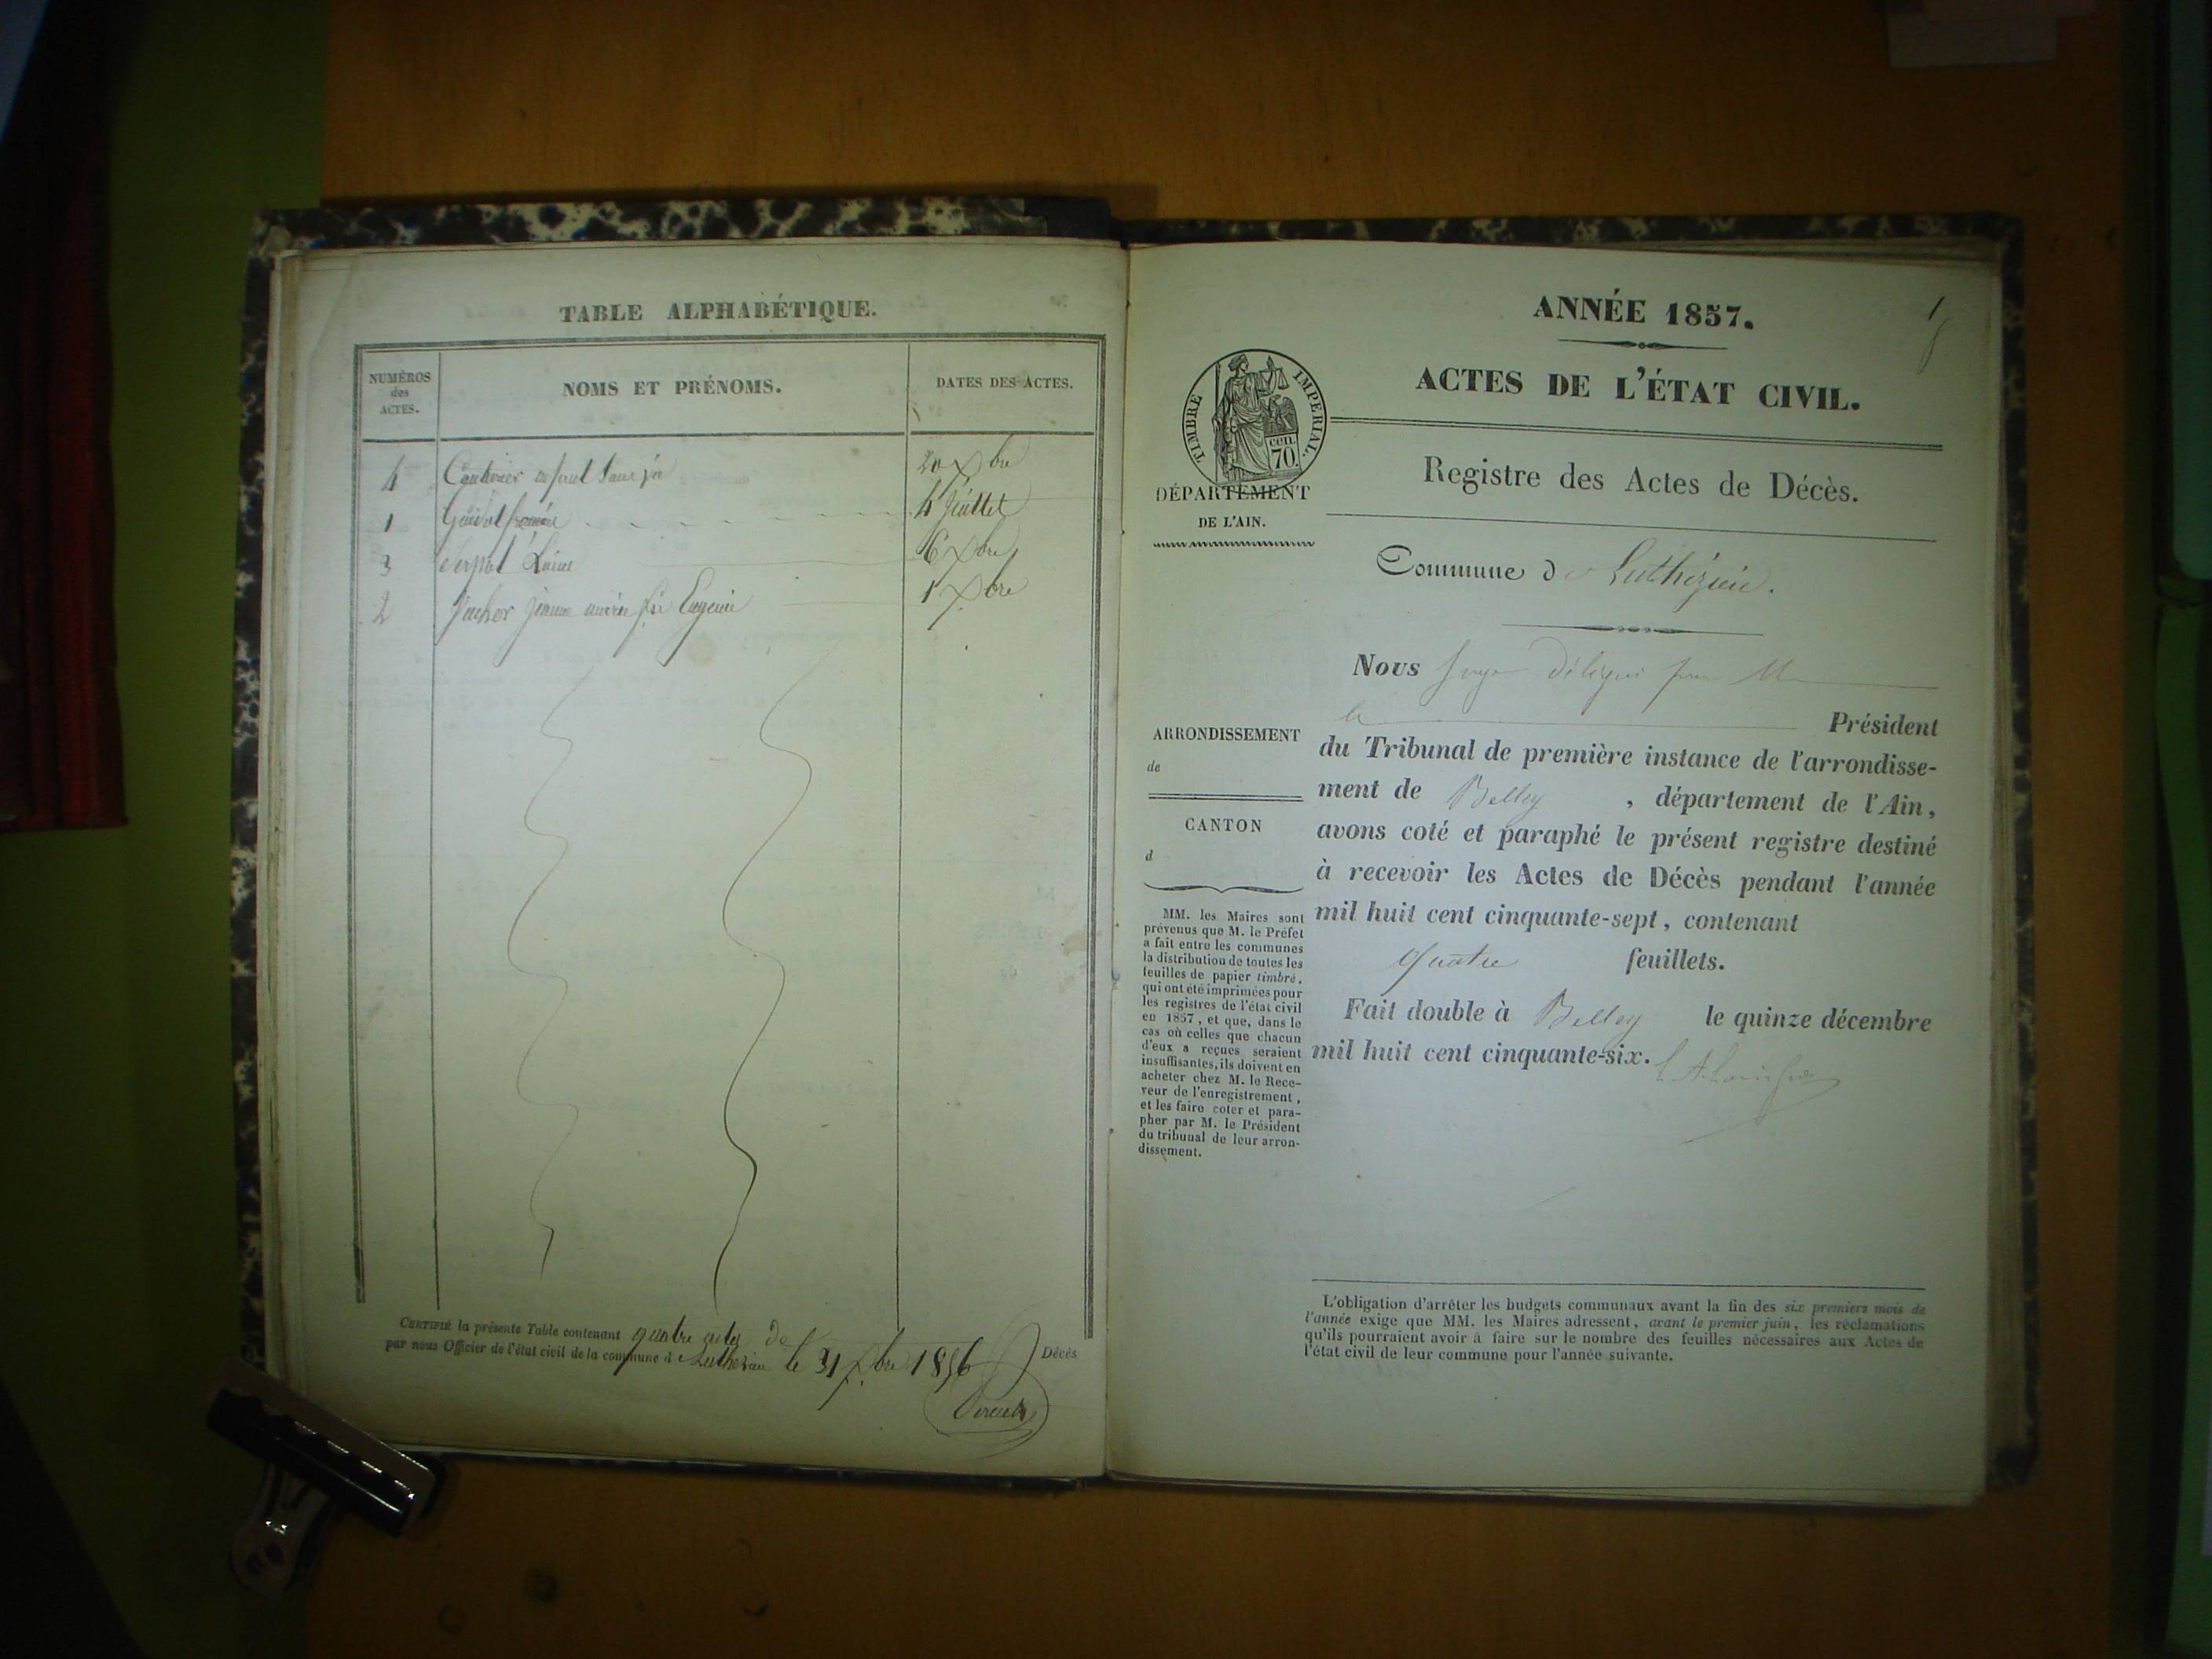 TABLE ALPHABÉTIQUE.
NUMÉROS
des
ACTES.
NOMS ET PRÉNOMS.
DATES DES ACTES.
4 20 Xbre
1 4 Juillet
3 6 Xbre
2 Jeanne Eugenie 1 Xbre
CERTIFIÉ la présente Table contenant quatre actes de Décès
par nous Officier de l'état civil de la commune d Luthezieu le 31 Xbre 1856
ANNÉE 1857.
1
ACTES DE L'ÉTAT CIVIL.
TIMBRE IMPERIAL.
cen.
70.
DÉPARTEMENT
DE L'AIN.
Registre des Actes de Décès.
Commune de Luthézieu.
Nous Juge délégué par M
le Président
du Tribunal de première instance de l'arrondisse-
ment de Belley, département de l'Ain,
avons coté et paraphé le présent registre destiné
à recevoir les Actes de Décès pendant l'année
mil huit cent cinquante-sept, contenant
quatre feuillets.
Fait double à Belley le quinze décembre
mil huit cent cinquante-six.
ARRONDISSEMENT
de
CANTON
d
MM. les Maires sont
prévenus que M. le Préfet
a fait entre les communes
la distribution de toutes les
feuilles de papier timbré,
qui ont été imprimées pour
les registres de l'état civil
en 1857, et que, dans le
cas où celles que chacun
d'eux a reçues seraient
insuffisantes, ils doivent en
acheter chez M. le Rece-
veur de l'enregistrement,
et les faire coter et para-
pher par M. le Président
du tribunal de leur arron-
dissement.
L'obligation d'arrêter les budgets communaux avant la fin des six premiers mois de
l'année exige que MM. les Maires adressent, avant le premier juin, les réclamations
qu'ils pourraient avoir à faire sur le nombre des feuilles nécessaires aux Actes de
l'état civil de leur commune pour l'année suivante.